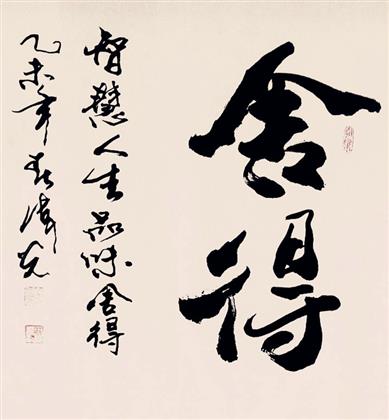 舍得
智慧人生品味舍得
乙未年